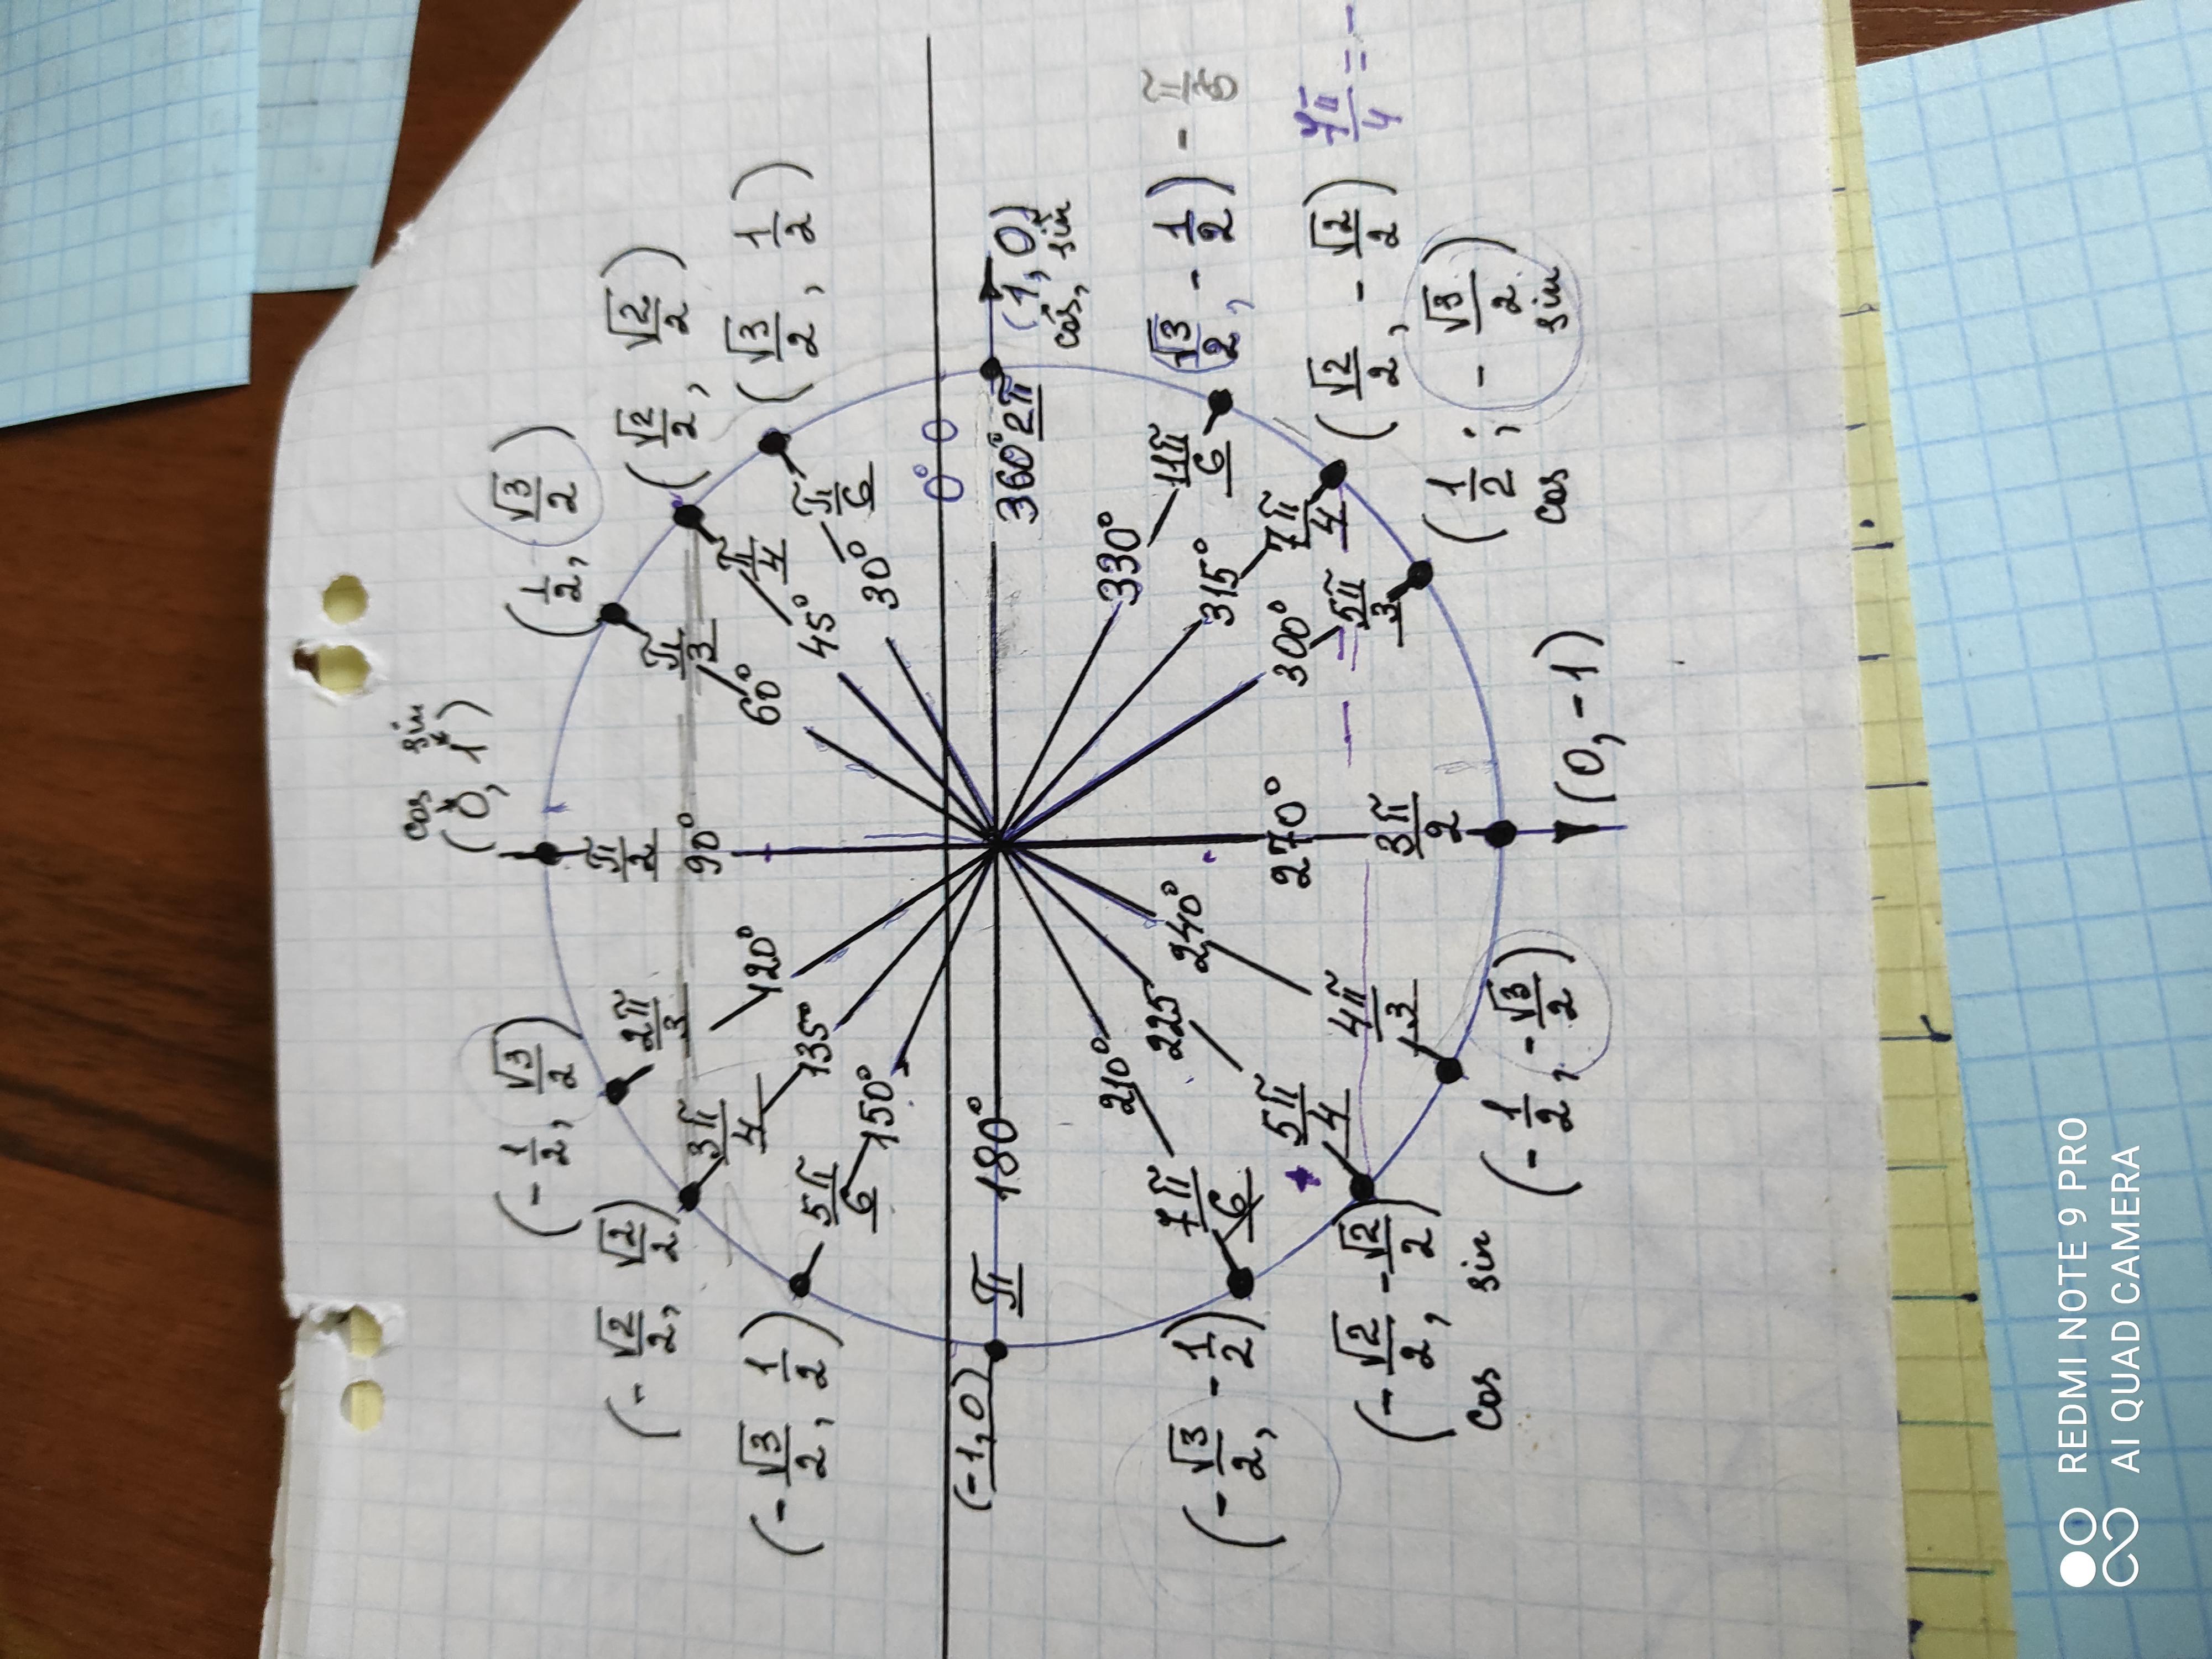 cos sin
(0, 1)
π/2
90°
(1/2, √3/2)
π/3
60°
(√2/2, √2/2)
π/4
45°
(√3/2, 1/2)
π/6
30°
0° 0
360° 2π
(1, 0)
cos, sin
330°
11π/6
(√3/2, -1/2)
315°
7π/4
(√2/2, -√2/2)
300°
5π/3
(1/2; -√3/2)
cos sin
270°
3π/2
(0, -1)
240°
4π/3
(-1/2, -√3/2)
225
5π/4
(-√2/2, -√2/2)
cos, sin
210°
7π/6
(-√3/2, -1/2)
180°
π
(-1, 0)
150°
5π/6
(-√3/2, 1/2)
135°
3π/4
(-√2/2, √2/2)
120°
2π/3
(-1/2, √3/2)
REDMI NOTE 9 PRO
AI QUAD CAMERA